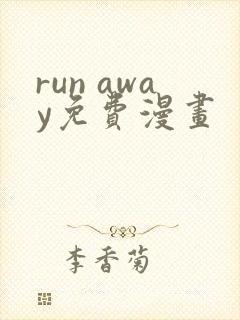 run awa
y免費漫畫
李香菊